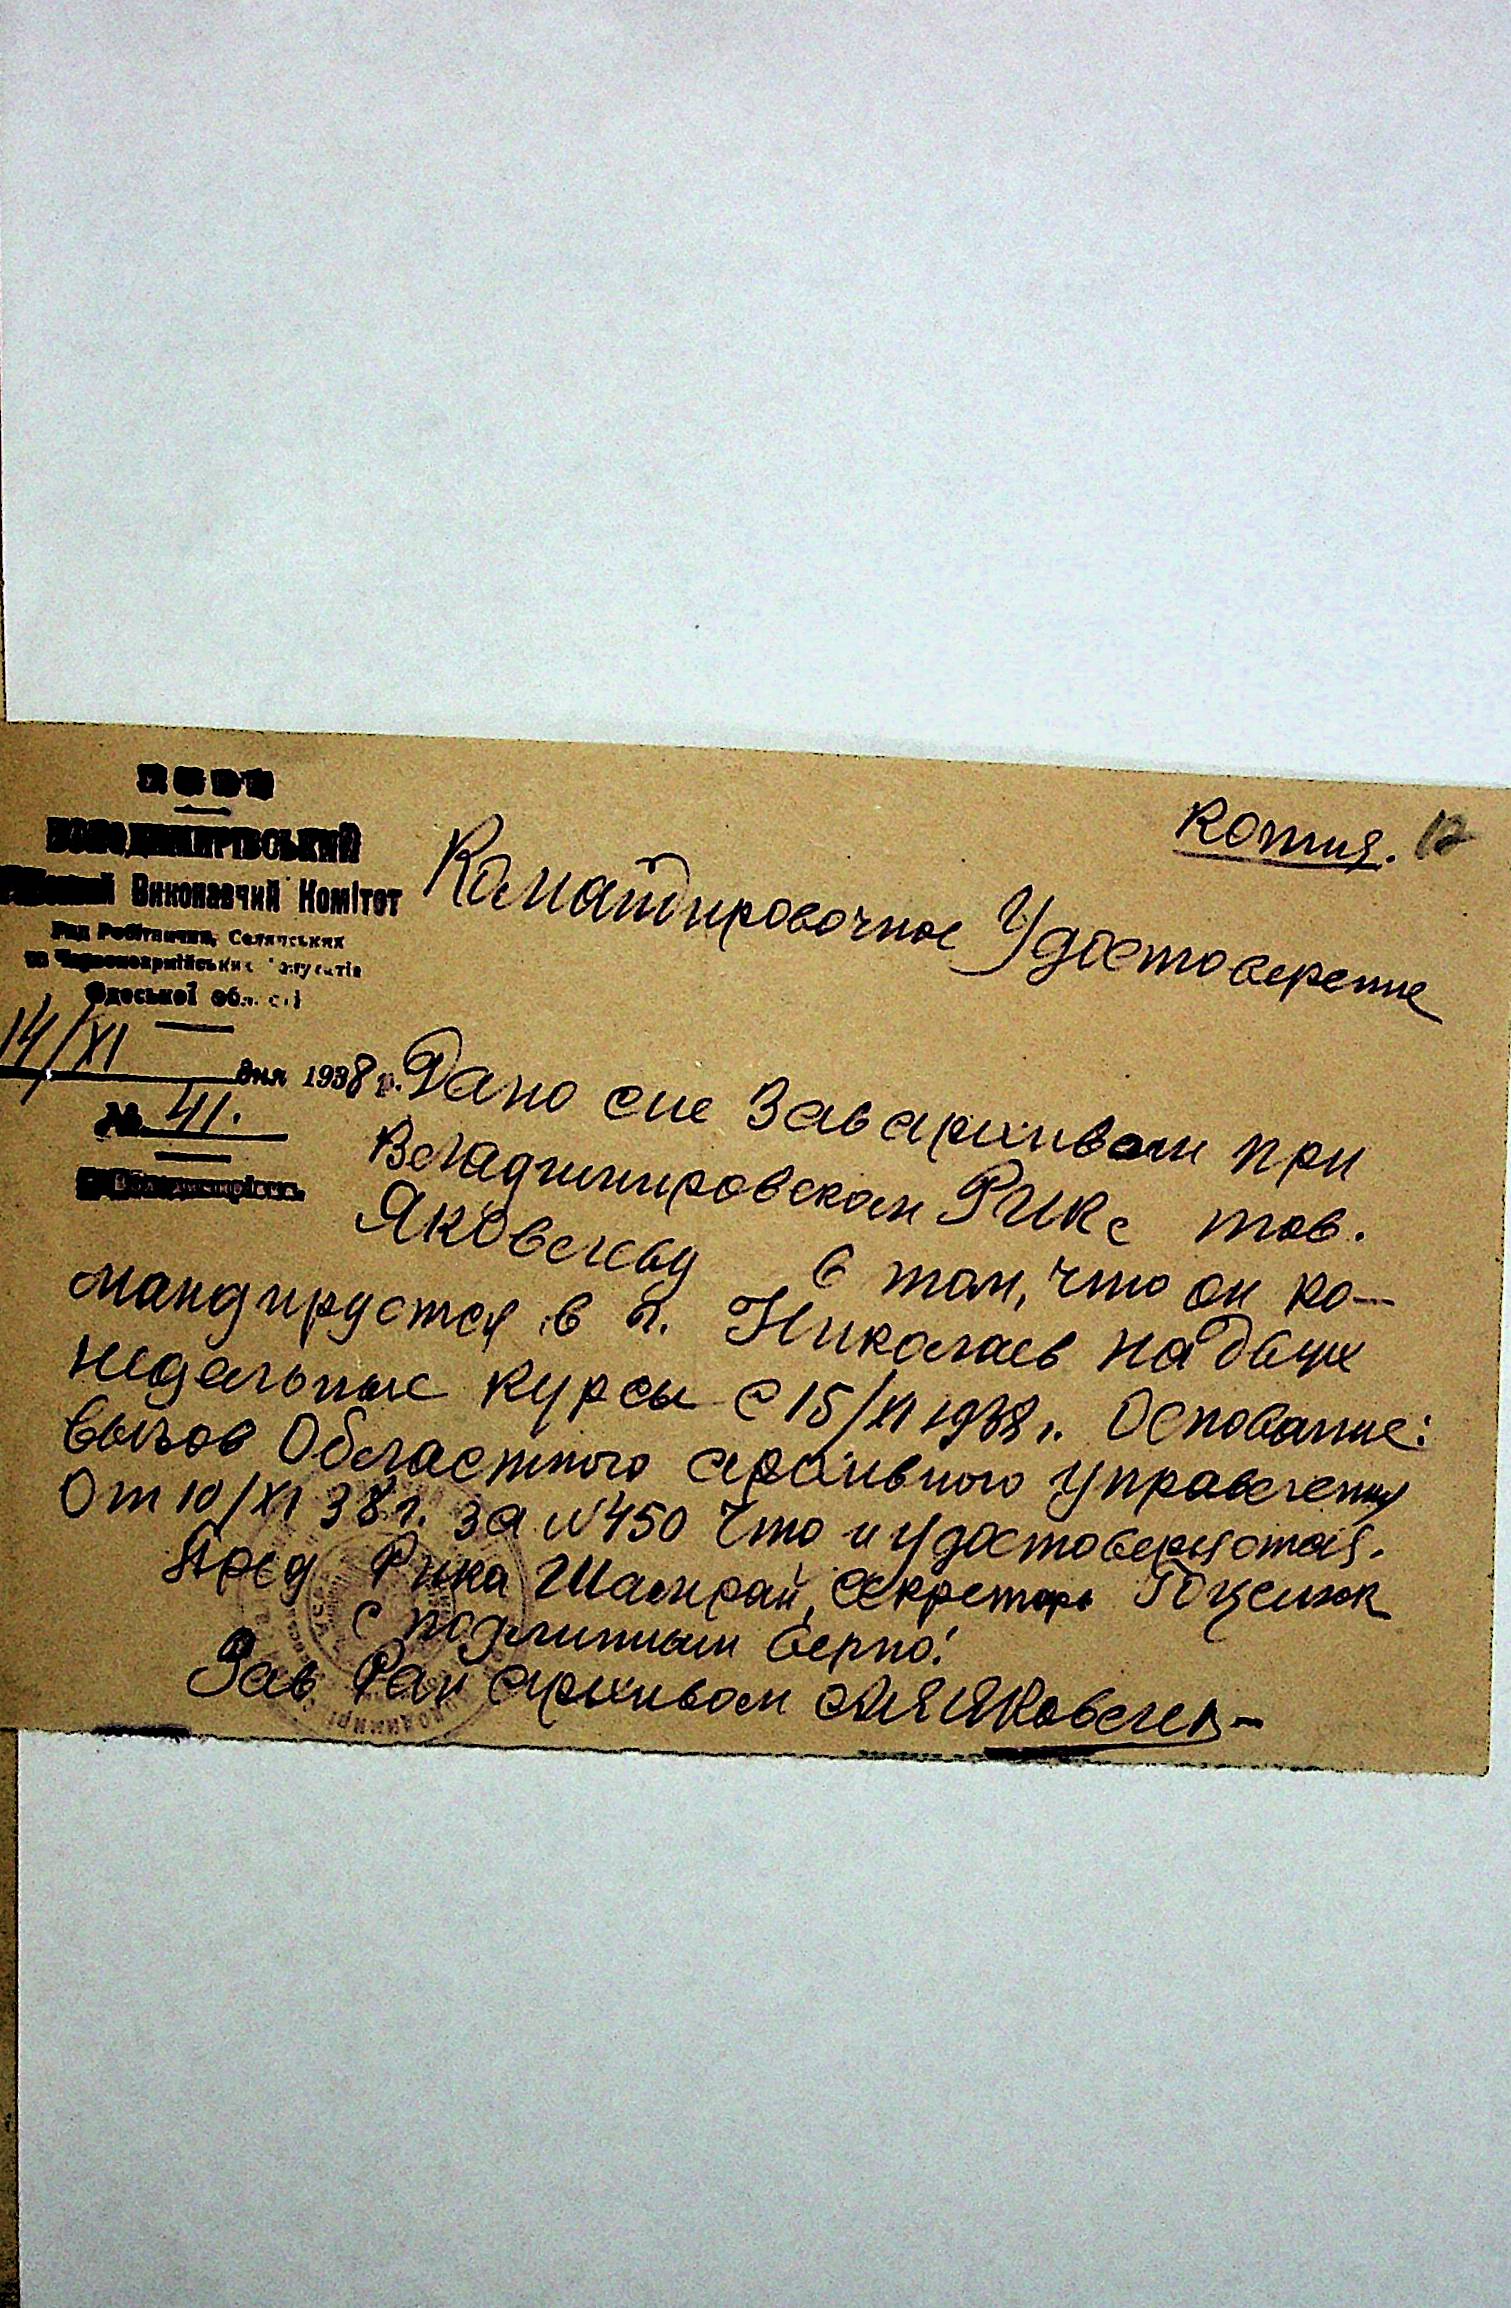 УСРР
ВОЛОДИМИРІВСЬКИЙ
Виконавчий Комітет
Рад Робітничих, Селянських
та Червоноармійських Депутатів
Одеської області
14/XI дня 1938 р.
№ 41.
Копия. 12
Командировочное Удостоверение
Дано сие Завархивом при
Владимировском РИКе тов.
Яковлеву в том, что он ко-
мандируется в г. Николаев на двух
недельные курсы с 15/XI 1938 г. Основание:
вызов Областного архивного управления
От 10/XI 38 г. за №450 Что и удостоверяется.
Пред Рика Шамрай, Секретарь
с подлинным верно!
Зав Рай архивом Яковлев